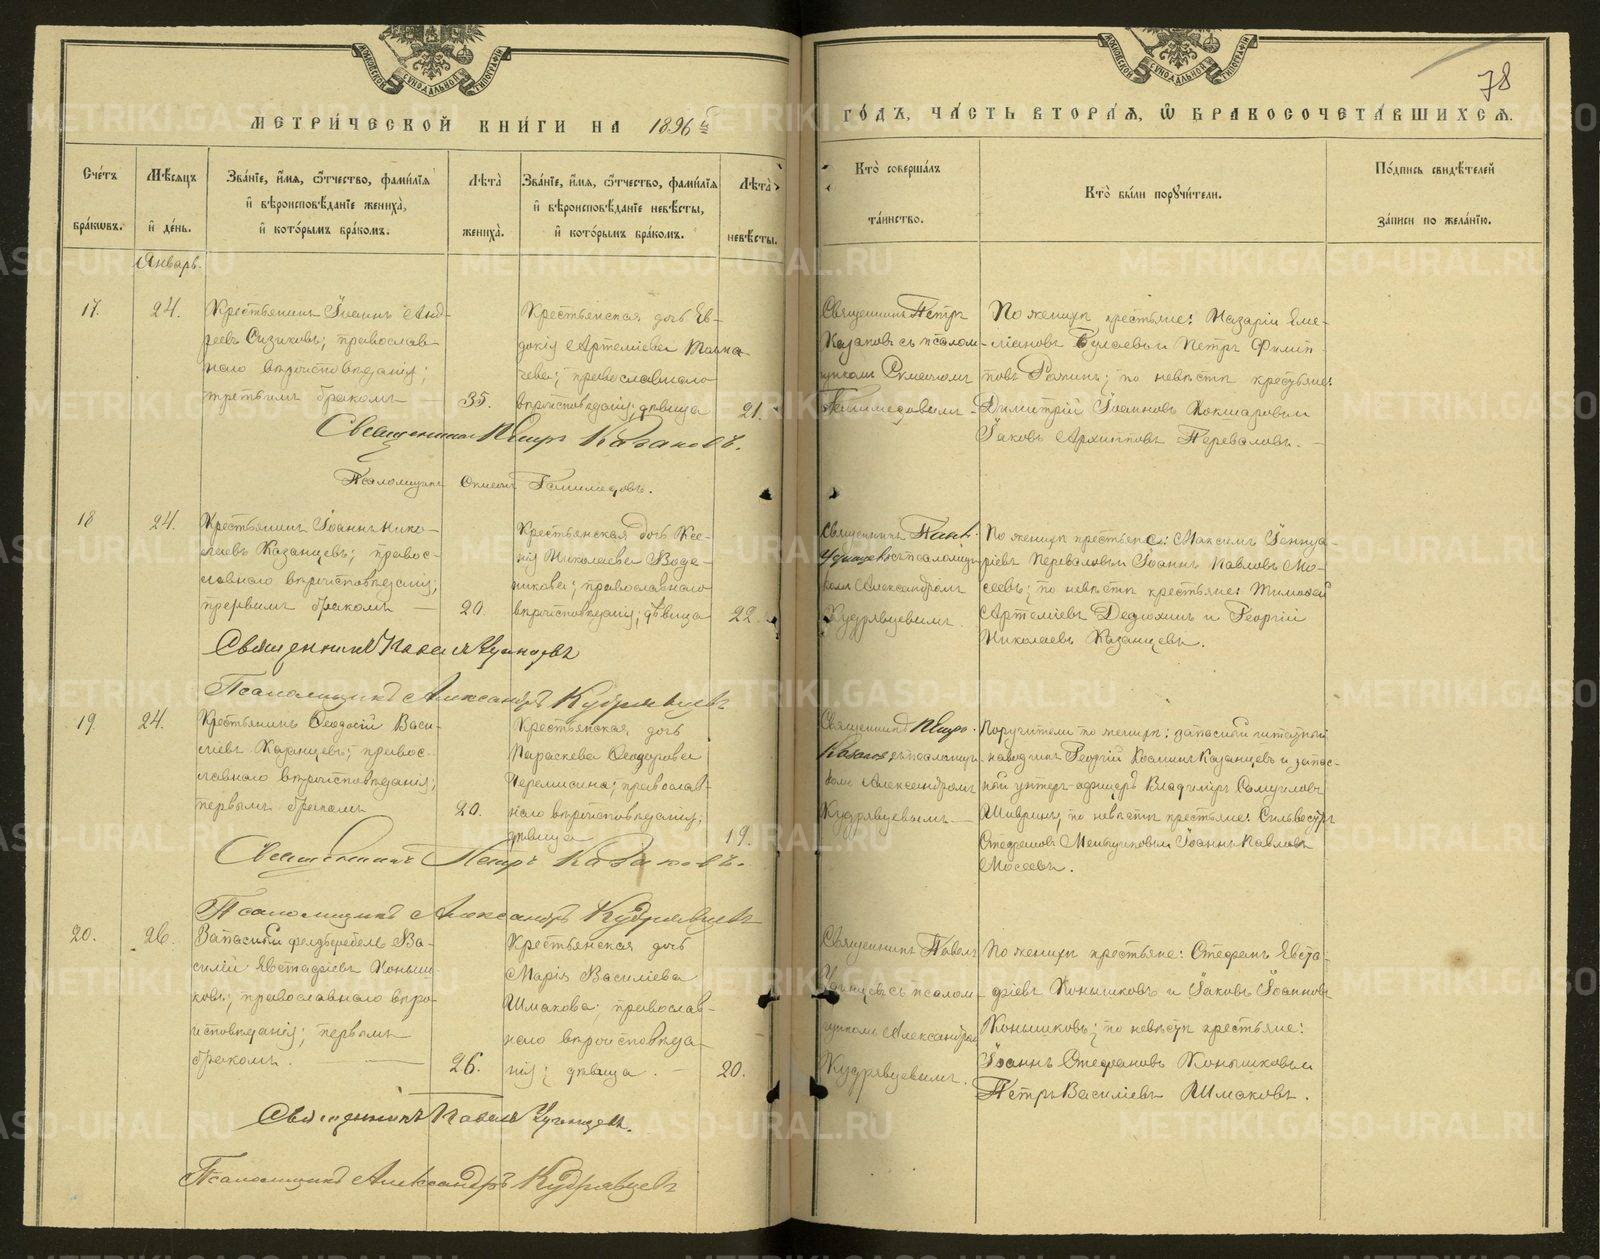 МОСКОВСКОЙ СѴНОДАЛЬНОЙ ТИПОГРАФІИ
МОСКОВСКОЙ СѴНОДАЛЬНОЙ ТИПОГРАФІИ
78
МЕТРИ́ЧЕСКОЙ КНИ́ГИ НА 1896й
ГО́ДЪ, ЧА́СТЬ ВТОРА́Я, Ѡ БРАКОСОЧЕТА́ВШИХСЯ.
Сче́тъ бра́кωвъ.
Мѣ́сяцъ и де́нь.
Зва́нїе, и́мя, ѻ́тчество, фами́лїя и вѣроисповѣ́данїе жениха̀, и кото́рымъ бра́комъ.
Лѣта̀ жениха̀.
Зва́нїе, и́мя, ѻ́тчество, фами́лїя и вѣроисповѣ́данїе невѣ́сты, и кото́рымъ бра́комъ.
Лѣта̀ невѣ́сты.
Кто̀ соверша́лъ та́инство.
Кто̀ бы́ли порꙋчи́тели.
По́дпись свидѣ́телей за́писи по жела́нїю.
Январь.
17.
24.
Крестьянинъ Іоаннъ Анд-
реевъ Сизиковъ; православ-
наго вѣроисповѣданія;
третьимъ бракомъ —
35.
Крестьянская дочь Ев-
докія Артеміева
православнаго
вѣроисповѣданія; дѣвица
21.
Священникъ Петръ
Казаковъ съ псалом-
щикомъ
По женихѣ крестьяне: Назарій Еме-
ліановъ Булаевъ и Петръ Филип-
повъ по невѣстѣ крестьяне:
Димитрій Іоанновъ Кокшаровъ и
Іаковъ Архипповъ Переваловъ. —
Священникъ Петръ Казаковъ.
Псаломщикъ
18
24.
Крестьянинъ Іоаннъ Нико-
лаевъ Казанцевъ; правос-
лавнаго вѣроисповѣданія;
первымъ бракомъ —
20.
Крестьянская дочь Ксе-
нія Николаева
православнаго
вѣроисповѣданія; дѣвица
22.
Священникъ Павелъ
съ псаломщи-
комъ Александромъ
Кудрявцевымъ.
По женихѣ крестьяне: Максимъ Геннуа-
ріевъ Переваловъ и Іоаннъ Павловъ Мо-
сеевъ; по невѣстѣ крестьяне: Тимофей
Артеміевъ Дедюхинъ и Георгій
Николаевъ Казанцевъ.
Священникъ Павелъ
Псаломщикъ Александръ Кудрявцевъ
19.
24.
Крестьянинъ Феодосій Васи-
ліевъ Казанцевъ; правос-
лавнаго вѣроисповѣданія;
первымъ бракомъ
20.
Крестьянская дочь
Параскева Феодорова
православ-
наго вѣроисповѣданія;
дѣвица
19.
Священникъ Петръ
Казаковъ съ псаломщи-
комъ Александромъ
Кудрявцевымъ —
Поручители по женихѣ: запасный
Георгій Космивъ Казанцевъ и запас-
ный унтеръ-офицеръ Владиміръ Самуиловъ
по невѣстѣ крестьяне: Сильвестръ
Стефановъ Меньшиковъ и Іоаннъ Павловъ
Мосеевъ.
Священникъ Петръ Казаковъ.
Псаломщикъ Александръ Кудрявцевъ
20.
26.
Запасный фельдфебель Ва-
силій Евстафіевъ Коньши-
ковъ; православнаго вѣро-
исповѣданія; первымъ
бракомъ. —
26.
Крестьянская дочь
Марія Василіева
Шмакова; православ-
наго вѣроисповѣда-
нія; дѣвица. —
20.
Священникъ Павелъ
съ псалом-
щикомъ Александромъ
Кудрявцевымъ.
По женихѣ крестьяне: Стефанъ Евста-
фіевъ Коньшиковъ и Іаковъ Іоанновъ
Коньшиковъ; по невѣстѣ крестьяне:
Іоаннъ Стефановъ Коньшиковъ и
Петръ Василіевъ Шмаковъ.
Священникъ Павелъ
Псаломщикъ Александръ Кудрявцевъ
METRIKI.GASO-URAL.RU